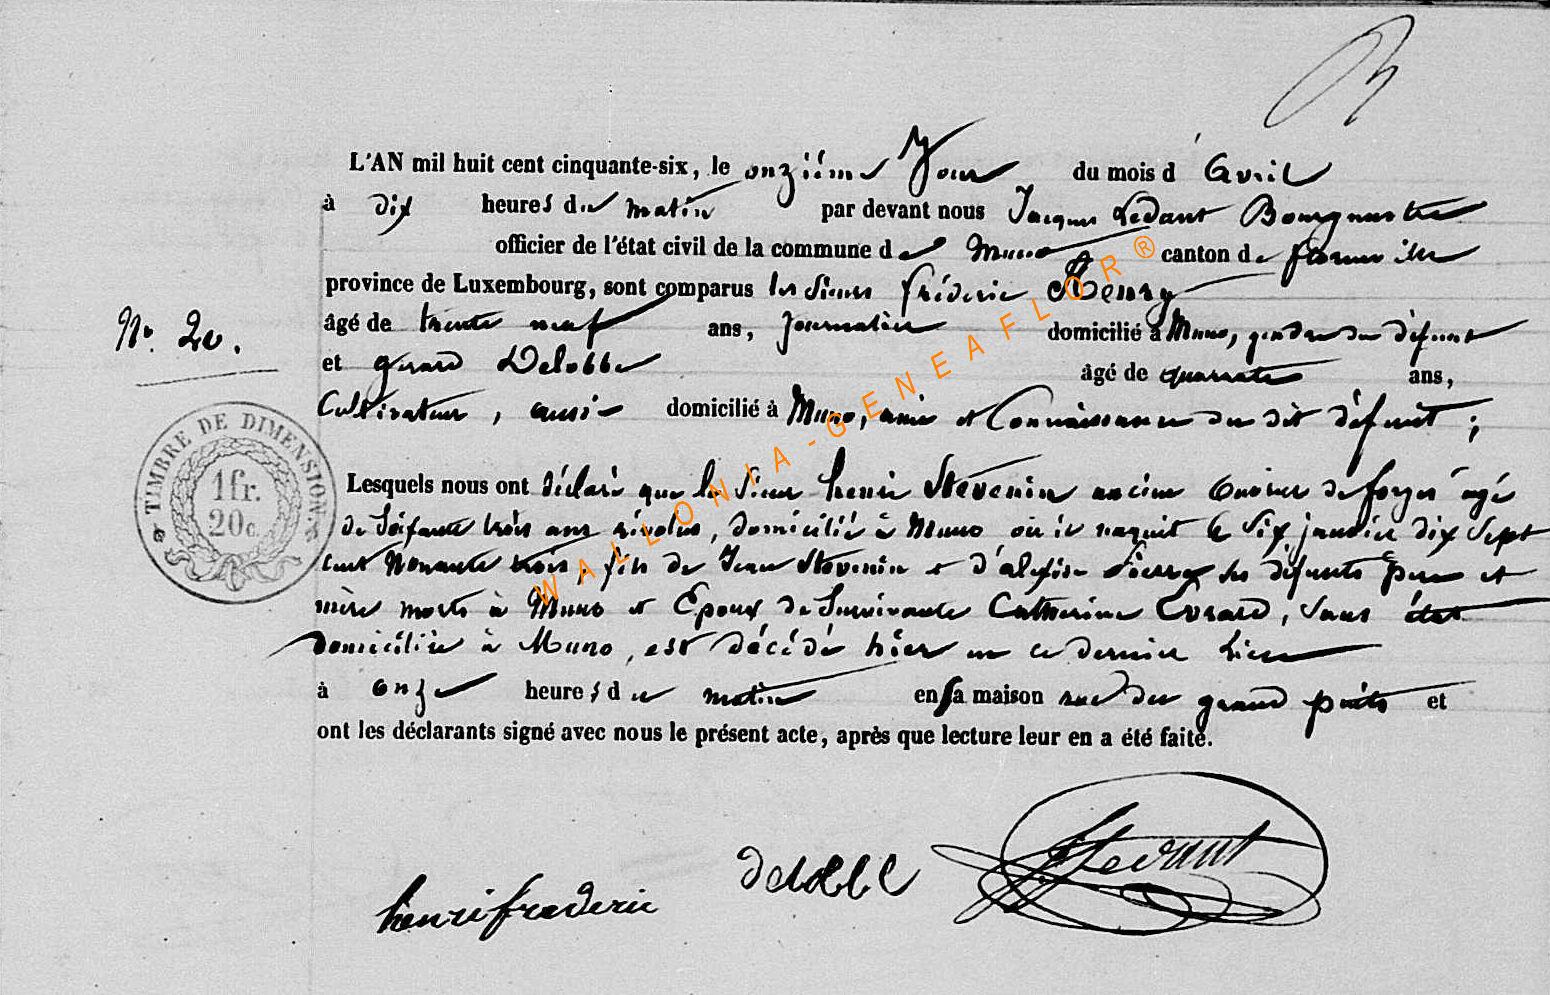 L'AN mil huit cent cinquante-six, le onzième Jour du mois d'Avril
à dix heures du matin par devant nous Jacques Ledant Bourgmestre
officier de l'état civil de la commune de Muno canton de florenville
province de Luxembourg, sont comparus les Sieurs frédéric Henry
âgé de trente neuf ans, Journalier domicilié à Muno, gendre du défunt
N° 20.
et gérard Delobbe âgé de quarante ans,
Cultivateur, aussi domicilié à Muno, amis et Connaissance du dit défunt ;
TIMBRE DE DIMENSION
1 fr.
20 c.
Lesquels nous ont déclaré que le Sieur henri Stévenin ancien Ouvrier de forges âgé
de Soixante trois ans révolus, domicilié à Muno où il naquit le Six janvier dix Sept
cent Nonante trois, fils de Jean Stévenin et d' Pierre les défunts père et
mère morts à Muno et Epoux de Survivante Catherine Evrard, Sans état
domiciliée à Muno, est décédé hier en ce dernier lieu
à onze heures du matin en sa maison rue du grand puits et
ont les déclarants signé avec nous le présent acte, après que lecture leur en a été faite.
henri frederic delobbe JLedant
WALLONIA-GENEAFLOR®